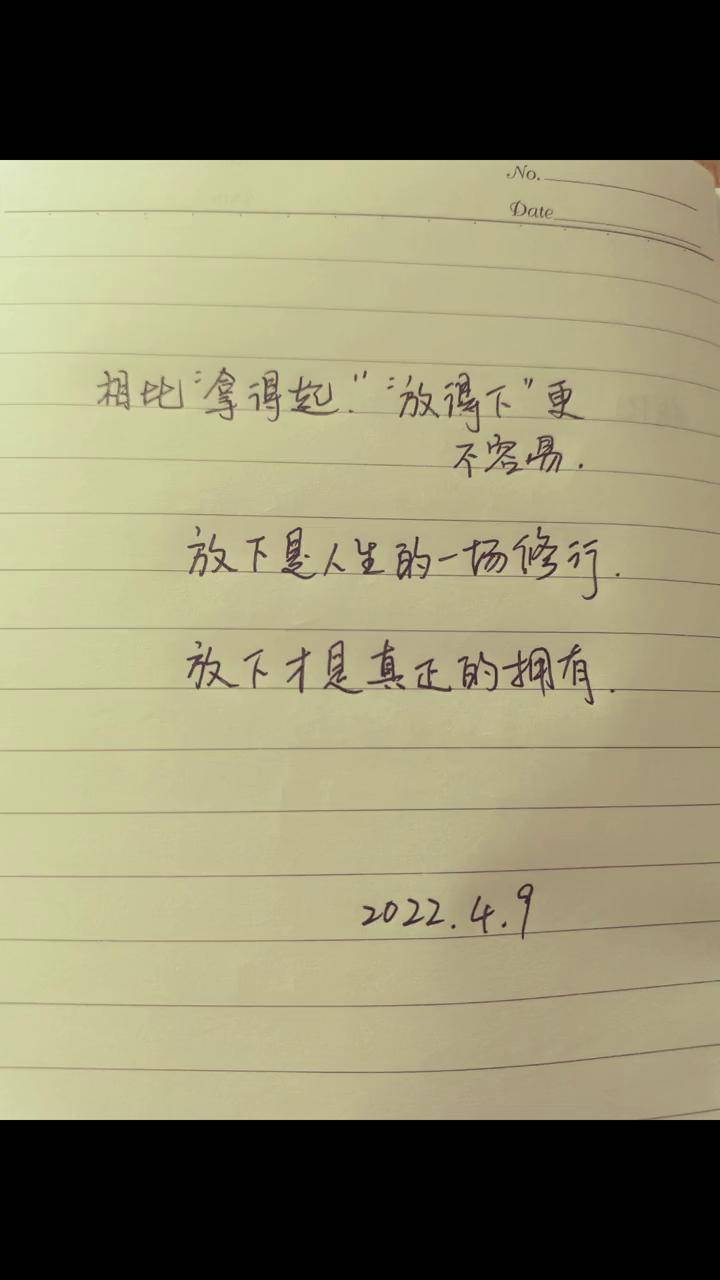 No.
Date
相比“拿得起.”“放得下”更
不容易.
放下是人生的一场修行.
放下才是真正的拥有.
2022.4.9